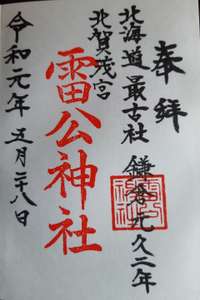 奉拝
北海道最古社 鎌倉元久二年
北賀茂宮
雷公神社
令和元年五月二十八日